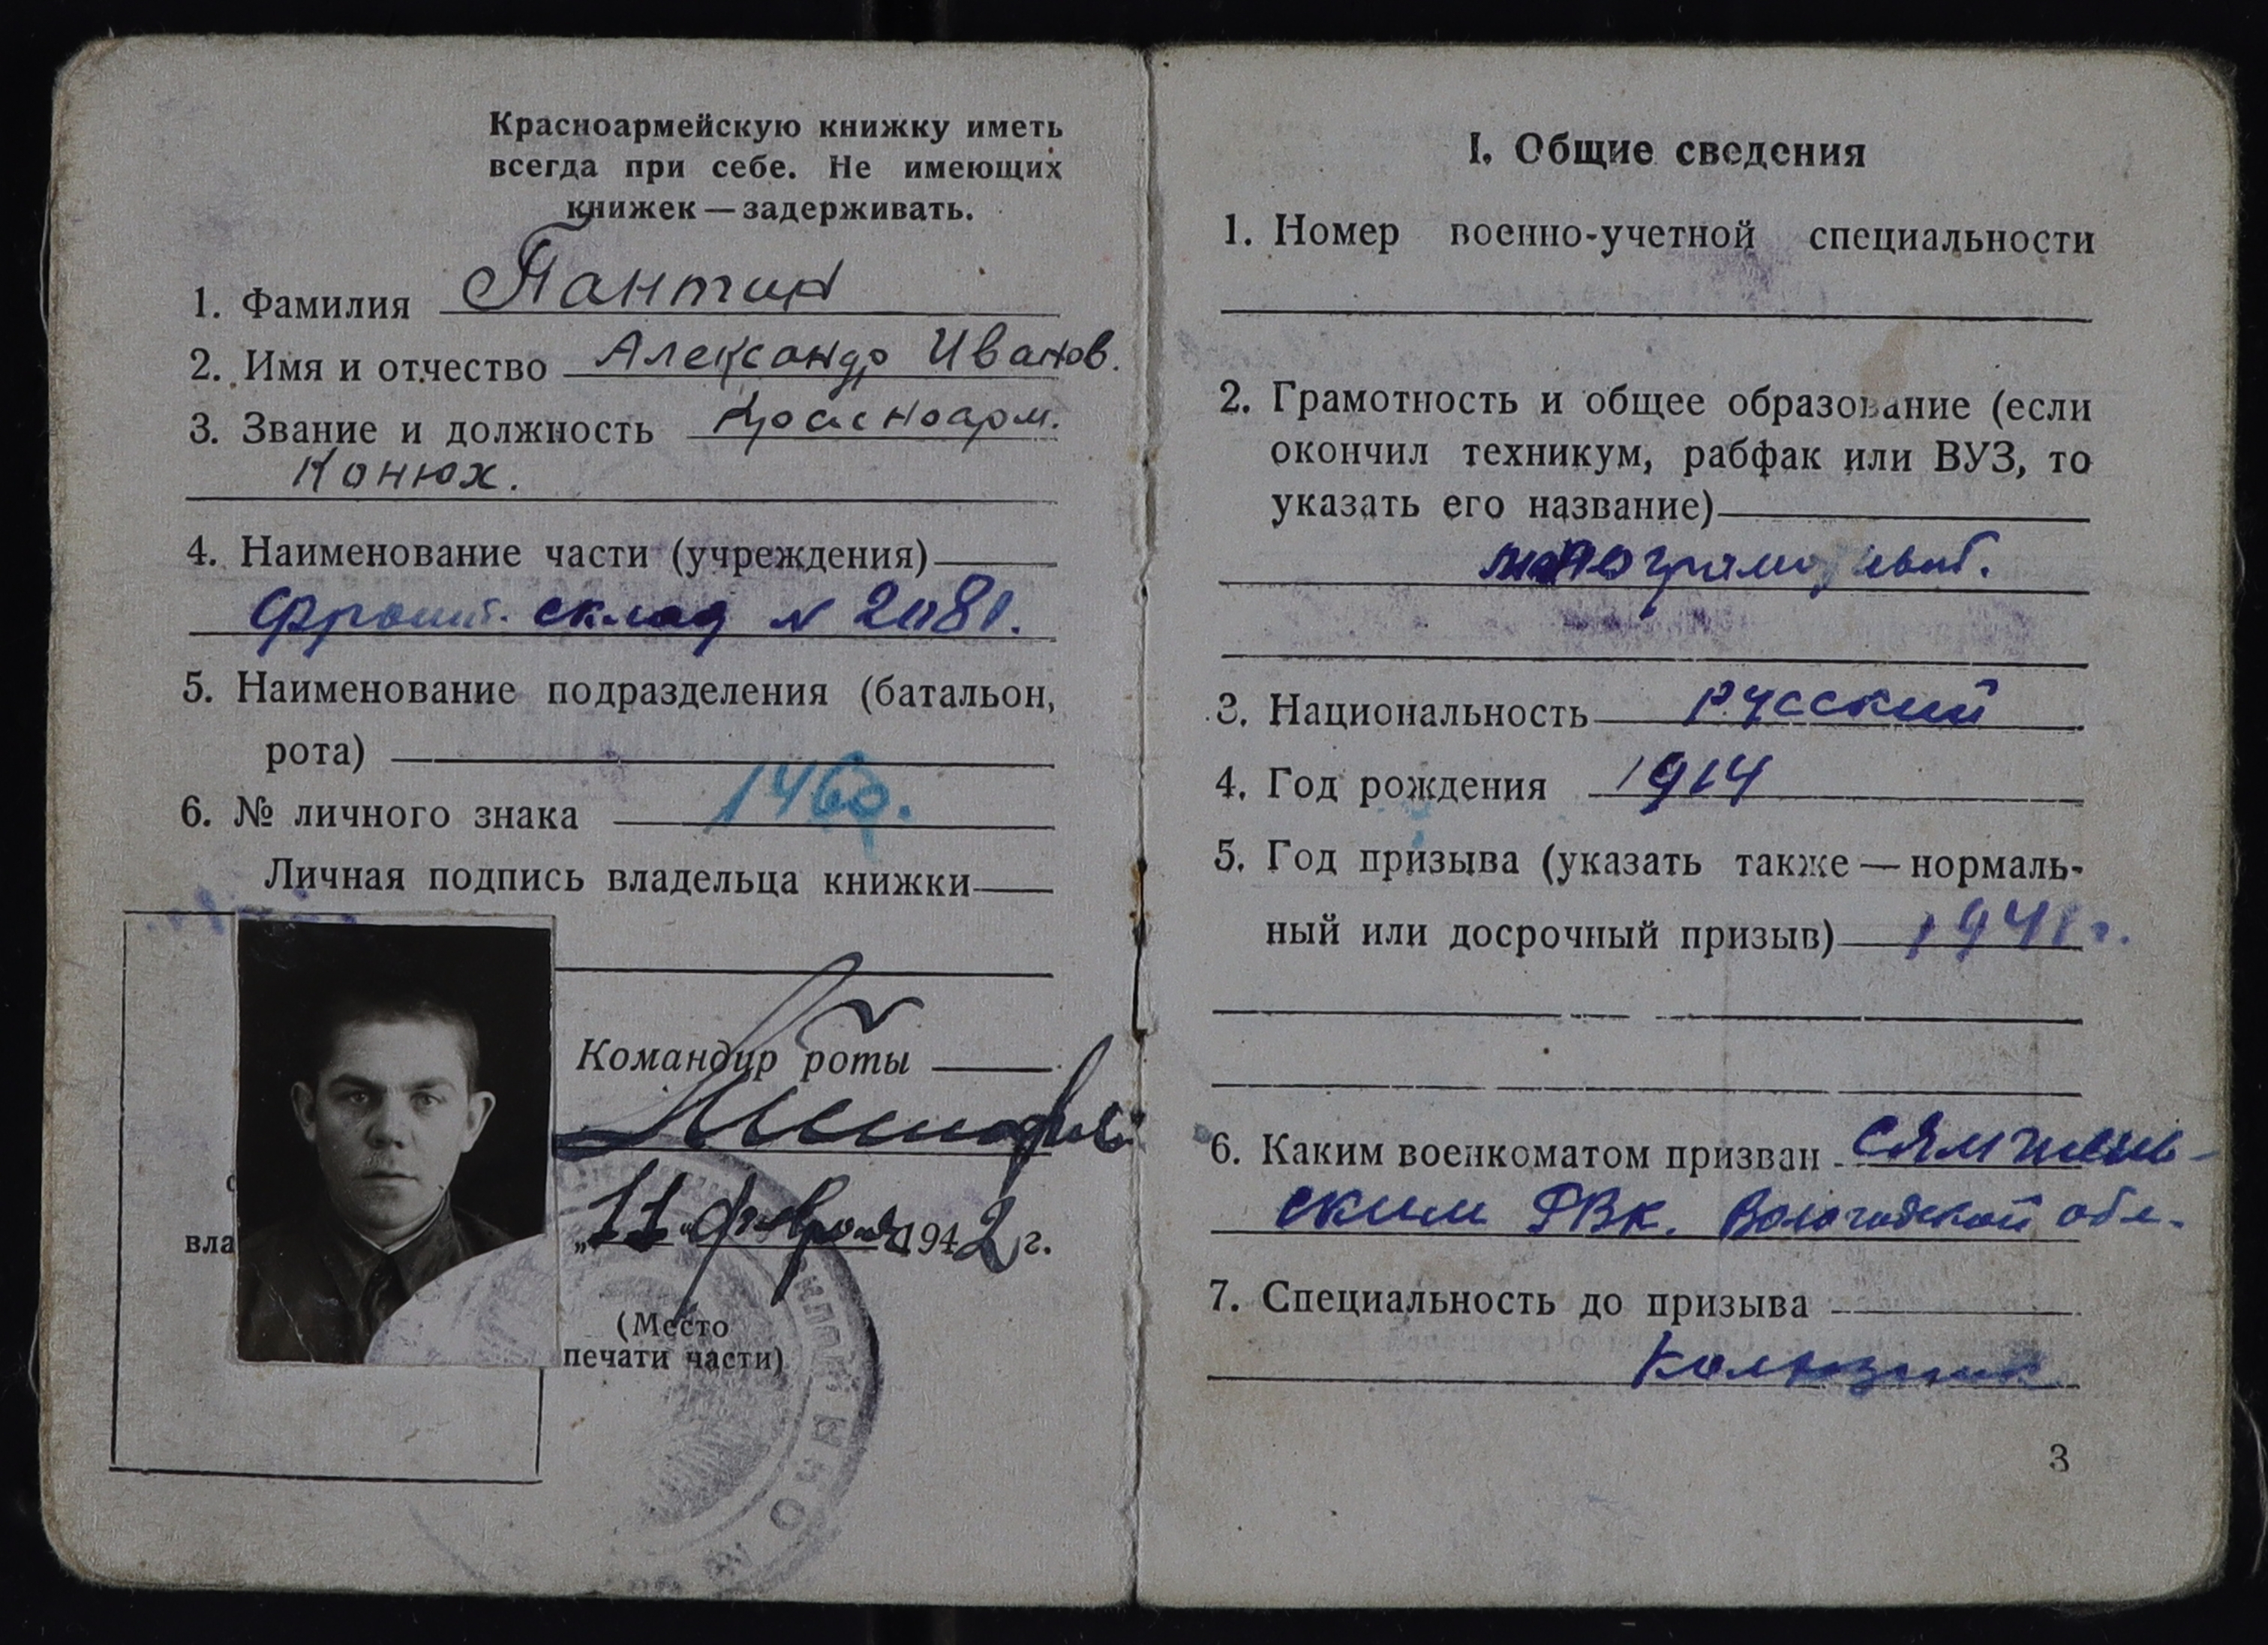 Красноармейскую книжку иметь
всегда при себе. Не имеющих
книжек — задерживать.
1. Фамилия Пантин
2. Имя и отчество Александр Иванов.
3. Звание и должность Красноарм.
Конюх.
4. Наименование части (учреждения)
Фронт. склад № 2081.
5. Наименование подразделения (батальон,
рота)
6. № личного знака
Личная подпись владельца книжки
Командир роты
вла
„11" февраля 1942 г.
(Место
печати части)
I. Общие сведения
1. Номер военно-учетной специальности
2. Грамотность и общее образование (если
окончил техникум, рабфак или ВУЗ, то
указать его название)
малограмотный.
3. Национальность русский
4. Год рождения 1914
5. Год призыва (указать также — нормаль-
ный или досрочный призыв) 1941 г.
6. Каким военкоматом призван Сямжен-
ским РВК. Вологодской обл.
7. Специальность до призыва
Колхозник
3